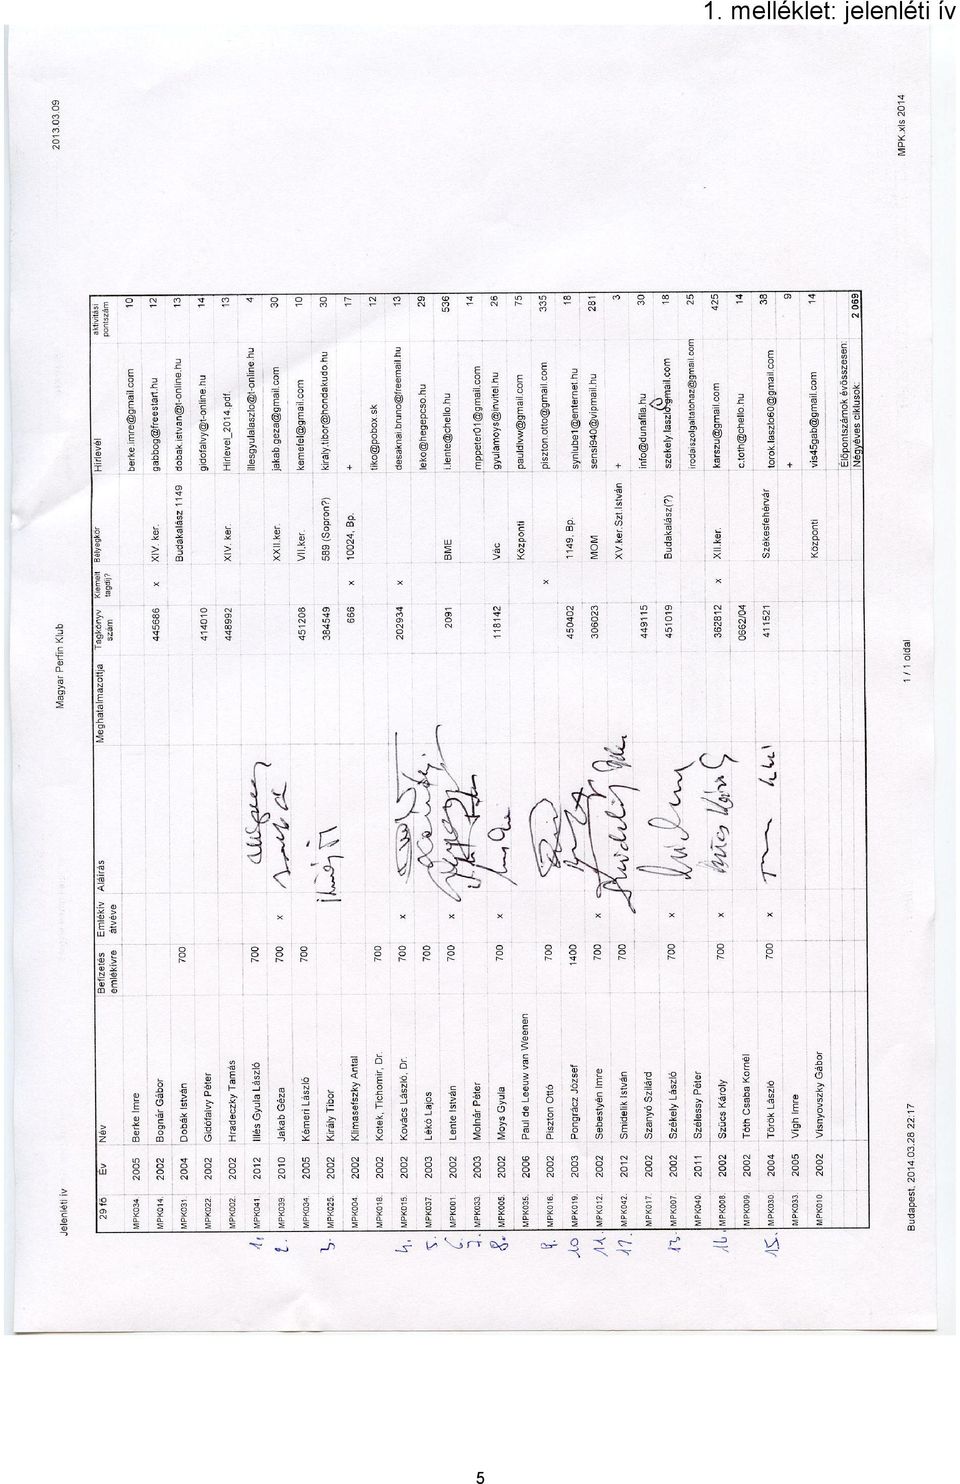 1. melléklet: jelenléti ív
Jelenléti ív Magyar Perfin Klub 2013.03.09
29 fő Év Név Befizetés emlékívre Emlékív átvéve Aláírás Meghatalmazottja Tagkönyv szám Kiemelt tagdíj? Bélyegkör Hírlevél aktivitási pontszám
MPK034. 2005 Berke Imre berke.imre@gmail.com 10
MPK014. 2002 Bognár Gábor 445686 x XIV. ker. gabbog@freestart.hu 12
MPK031. 2004 Dobák István 700 Budakalász 1149 dobak.istvan@t-online.hu 13
MPK022. 2002 Gidófalvy Péter 414010 gidofalvy@t-online.hu 14
MPK002. 2002 Hradeczky Tamás 448992 XIV. ker. Hirlevel_2014.pdf 13
1, MPK041. 2012 Illés Gyula László 700 illesgyulalaszlo@t-online.hu 4
2. MPK039. 2010 Jakab Géza 700 x XXII.ker. jakab.geza@gmail.com 30
MPK034. 2005 Kémeri László 700 451208 VII.ker. kemefel@gmail.com 10
3. MPK025. 2002 Király Tibor 384549 589 (Sopron?) kiraly.tibor@hondakudo.hu 30
MPK004. 2002 Klimasefszky Antal 666 x 10024, Bp. + 17
MPK018. 2002 Kotek, Tichomir, Dr. 700 tiko@pobox.sk 12
4. MPK015. 2002 Kovács László, Dr. 700 x 202934 x desaknai.bruno@freemail.hu 13
5. MPK037. 2003 Lékó Lajos 700 leko@hegepcso.hu 29
6. MPK001. 2002 Lente István 700 x 2091 BME i.lente@chello.hu 536
7. MPK033. 2003 Molnár Péter mppeter01@gmail.com 14
8. MPK005. 2002 Moys Gyula 700 x 118142 Vác gyulamoys@invitel.hu 26
MPK035. 2006 Paul de Leeuw van Weenen Központi pauldlvw@gmail.com 75
9. MPK016. 2002 Piszton Ottó 700 x piszton.otto@gmail.com 335
10 MPK019. 2003 Pongrácz József 1400 450402 1149, Bp. synlube1@enternet.hu 18
11. MPK012. 2002 Sebestyén Imre 700 x 306023 MOM sensi340@vipmail.hu 281
12. MPK042. 2012 Smidelik István 700 XV.ker.Szt.István + 3
MPK017. 2002 Szanyó Szilárd 449115 info@dunafila.hu 30
13. MPK007. 2002 Székely László 700 x 451019 Budakalász(?) szekely.laszlo@gmail.com 18
MPK040. 2011 Szélessy Péter irodaiszolgaltatohaz@gmail.com 25
14. MPK008. 2002 Szücs Károly 700 x Szücs Károly 362812 x XII.ker. karszu@gmail.com 425
MPK009. 2002 Tóth Csaba Kornél 0662/04 c.toth@chello.hu 14
15. MPK030. 2004 Török László 700 x 411521 Székesfehérvár torok.laszlo60@gmail.com 38
MPK033. 2005 Vígh Imre + 9
MPK010. 2002 Visnyovszky Gábor Központi vis45gab@gmail.com 14
Élőpontszámok évösszesen:
Négyéves ciklusok: 2 069
Budapest, 2014.03.28 22:17 1 / 1 oldal MPK.xls 2014
5